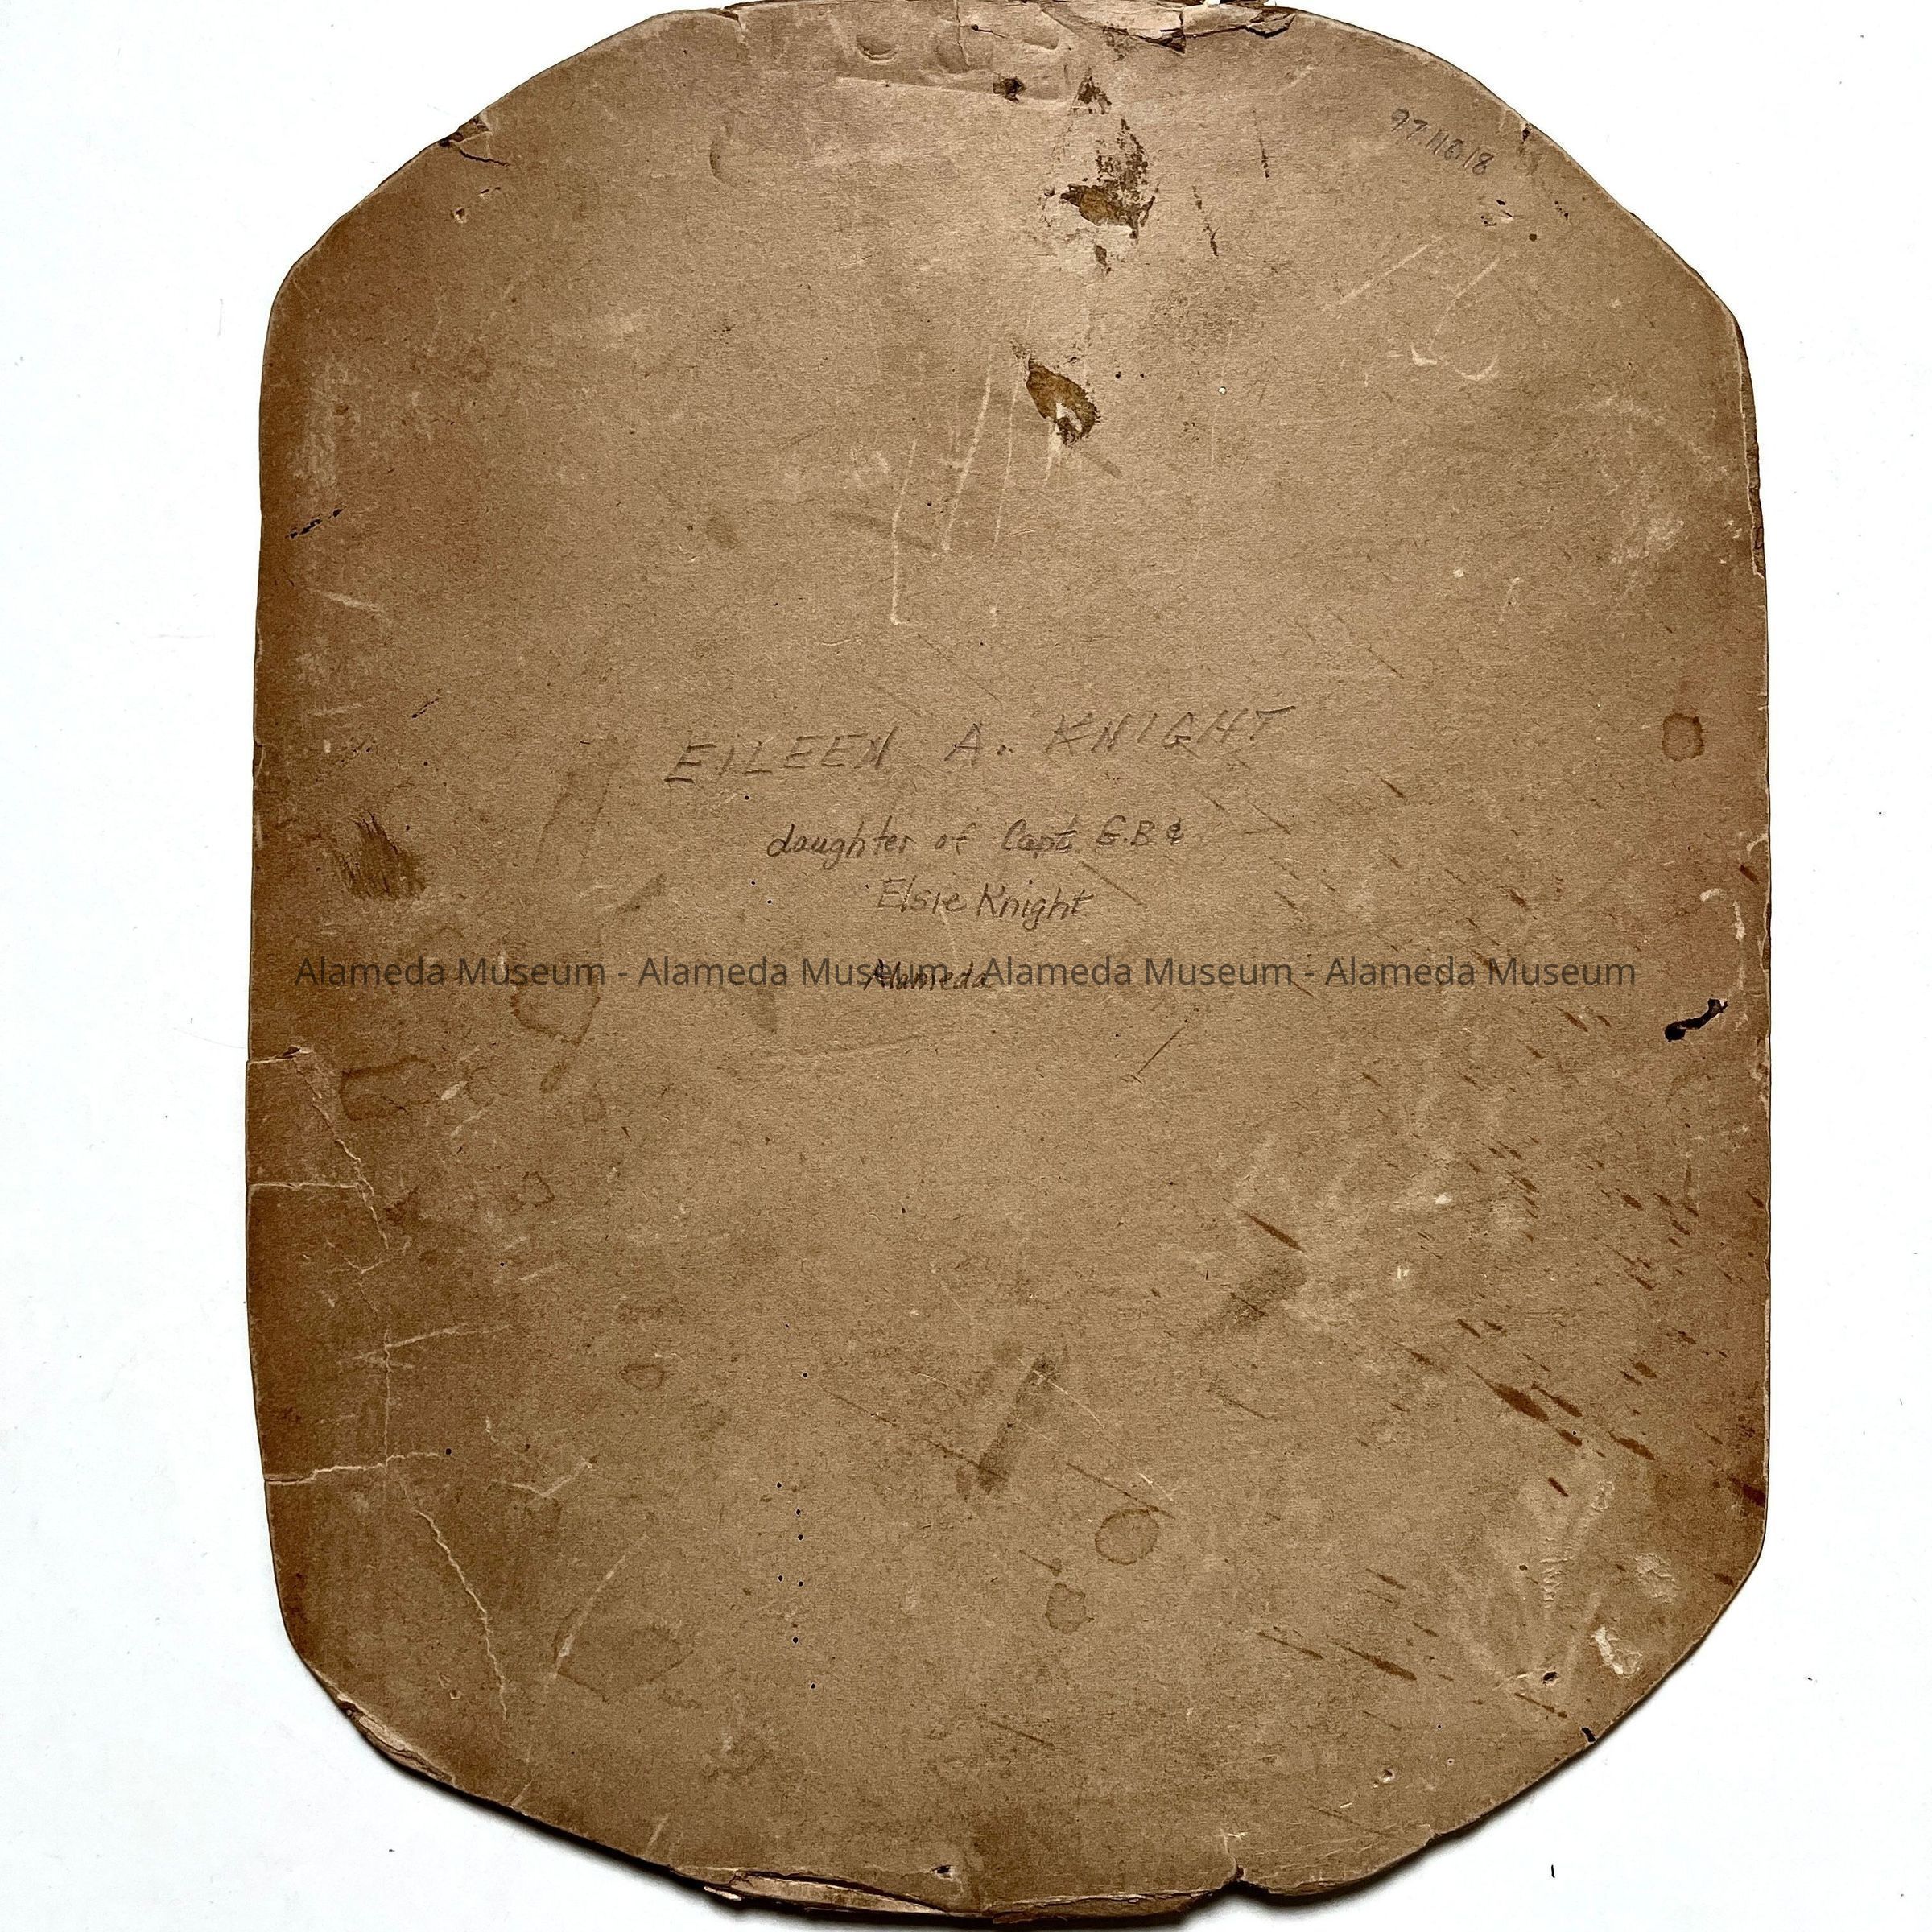 97.116.18
EILEEN A. KNIGHT
daughter of Capt. G.B &
Elsie Knight
Alameda
Alameda Museum - Alameda Museum - Alameda Museum - Alameda Museum